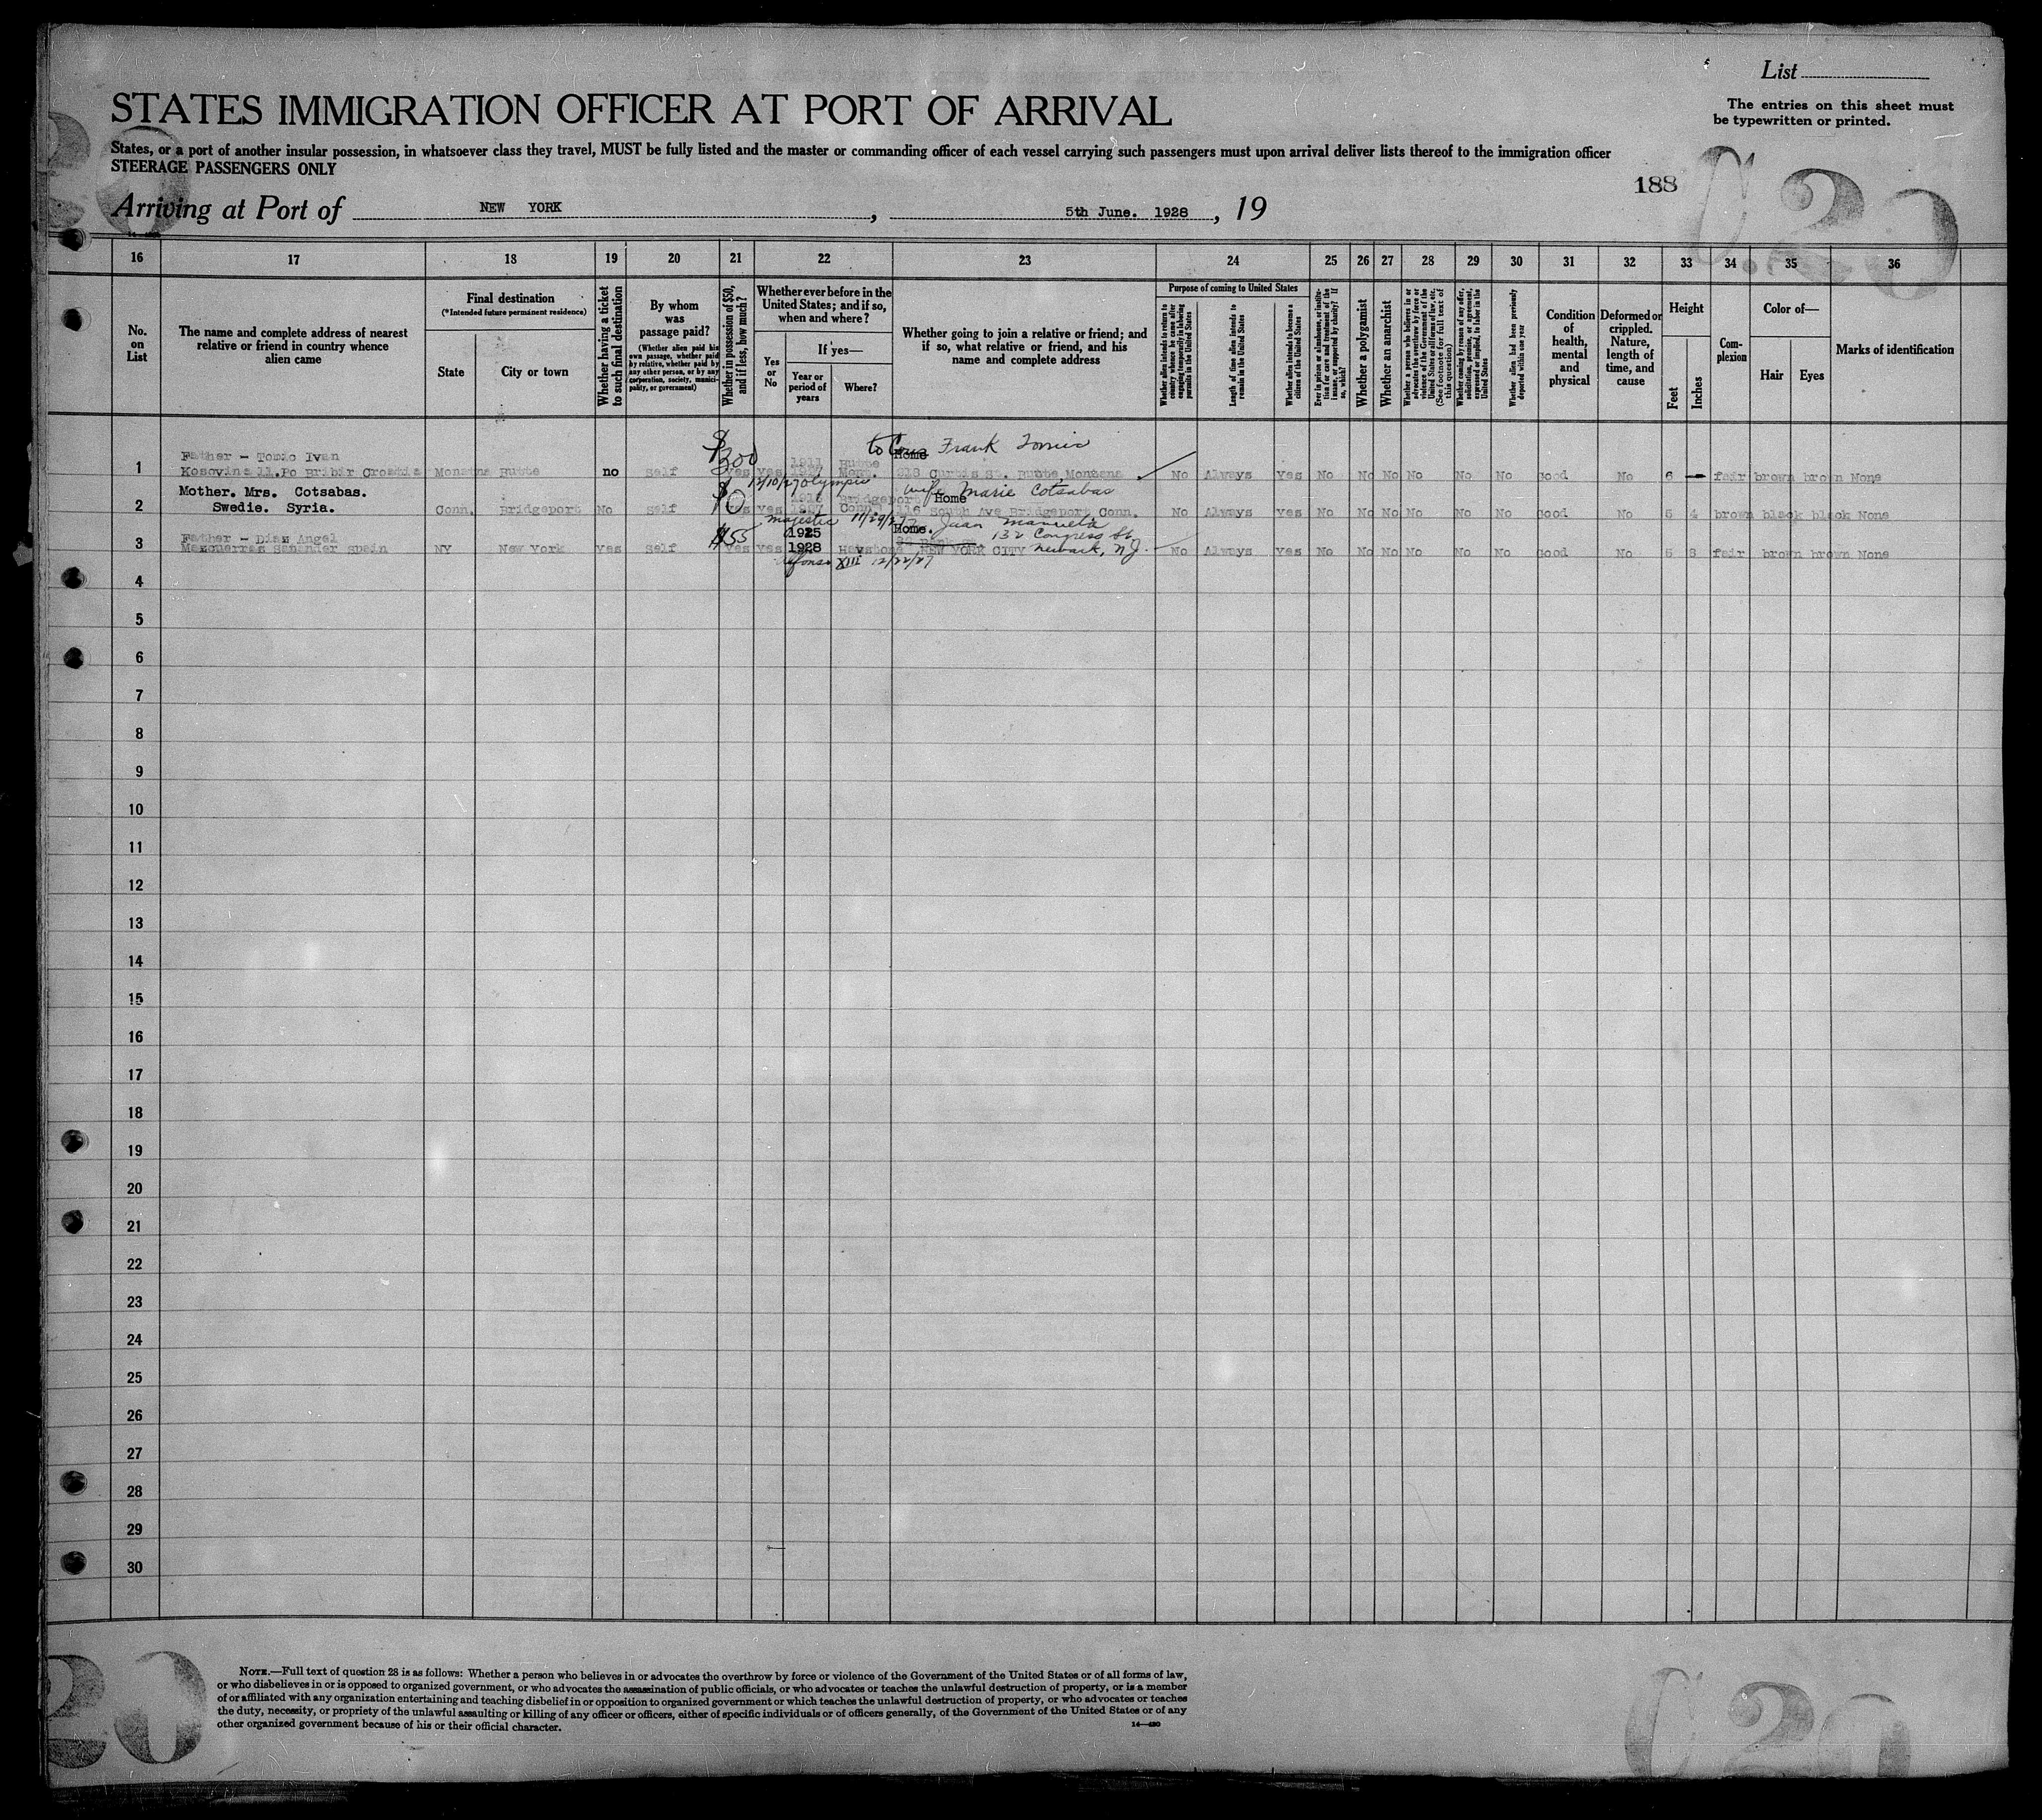 List
The entries on this sheet must
be typewritten or printed.
STATES IMMIGRATION OFFICER AT PORT OF ARRIVAL
States, or a port of another insular possession, in whatsoever class they travel, MUST be fully listed and the master or commanding officer of each vessel carrying such passengers must upon arrival deliver lists thereof to the immigration officer
STEERAGE PASSENGERS ONLY
188
Arriving at Port of NEW YORK, 5th June. 1928, 19
16 17 18 19 20 21 22 23 24 25 26 27 28 29 30 31 32 33 34 35 36
No. on List
The name and complete address of nearest relative or friend in country whence alien came
Final destination
(*Intended future permanent residence)
State
City or town
Whether having a ticket to such final destination
By whom was passage paid?
(Whether alien paid his own passage, whether paid by relative, whether paid by any other person, or by any corporation, society, municipality, or government)
Whether in possession of $50, and if less, how much?
Whether ever before in the United States; and if so, when and where?
Yes or No
If yes—
Year or period of years
Where?
Whether going to join a relative or friend; and if so, what relative or friend, and his name and complete address
Purpose of coming to United States
Whether alien intends to return to country whence he came after engaging temporarily in laboring pursuits in the United States
Length of time alien intends to remain in the United States
Whether alien intends to become a citizen of the United States
Ever in prison or almshouse, or institution for care and treatment of the insane, or supported by charity? If so, which?
Whether a polygamist
Whether an anarchist
Whether a person who believes in or advocates the overthrow by force or violence of the Government of the United States or all forms of law, etc. (See footnote for full text of this question)
Whether coming by reason of any offer, solicitation, promise, or agreement, expressed or implied, to labor in the United States
Whether alien had been previously deported within one year
Condition of health, mental and physical
Deformed or crippled. Nature, length of time, and cause
Height
Feet
Inches
Complexion
Color of—
Hair
Eyes
Marks of identification
$300 to Cous Frank Tomic
Father - Tomic Ivan 1911 Butte Home
1 Kosovina 11.Po Bribir Croatia Monatna Butte no Self Yes Yes 1927 Mont. 918 Curtis St. Butte Montana No Always Yes No No No No No No Good No 6 — fair brown brown None
12/10/27 Olympic
Mother. Mrs. Cotsabas. $10 Bridgeport wife Marie Cotsabas Home
2 Swedie. Syria. Conn. Bridgeport No Self Yes Yes 1927 Conn. 116 South Ave Bridgeport Conn. No Always Yes No No No No No No Good No 5 4 brown black black None
Majestic 11/29/27
Father - Diaz Angel $55 1925 Home. Juan Manuela 132 Congress St.
3 Spain NY New York Yes Self Yes Yes 1928 NEW YORK CITY Newark, N.J. No Always Yes No No No No No No Good No 5 8 fair brown brown None
Alfonso XIII 12/22/27
4
5
6
7
8
9
10
11
12
13
14
15
16
17
18
19
20
21
22
23
24
25
26
27
28
29
30
NOTE.—Full text of question 28 is as follows: Whether a person who believes in or advocates the overthrow by force or violence of the Government of the United States or of all forms of law,
or who disbelieves in or is opposed to organized government, or who advocates the assassination of public officials, or who advocates or teaches the unlawful destruction of property, or is a member
of or affiliated with any organization entertaining and teaching disbelief in or opposition to organized government or which teaches the unlawful destruction of property, or who advocates or teaches
the duty, necessity, or propriety of the unlawful assaulting or killing of any officer or officers, either of specific individuals or of officers generally, of the Government of the United States or of any
other organized government because of his or their official character.
14—430
20
C 20